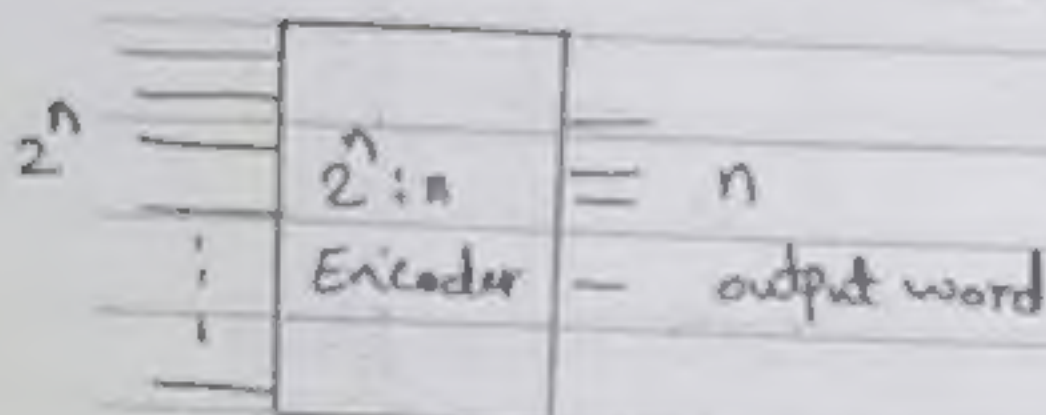 2^n
2^n : n
n
Encoder
output word